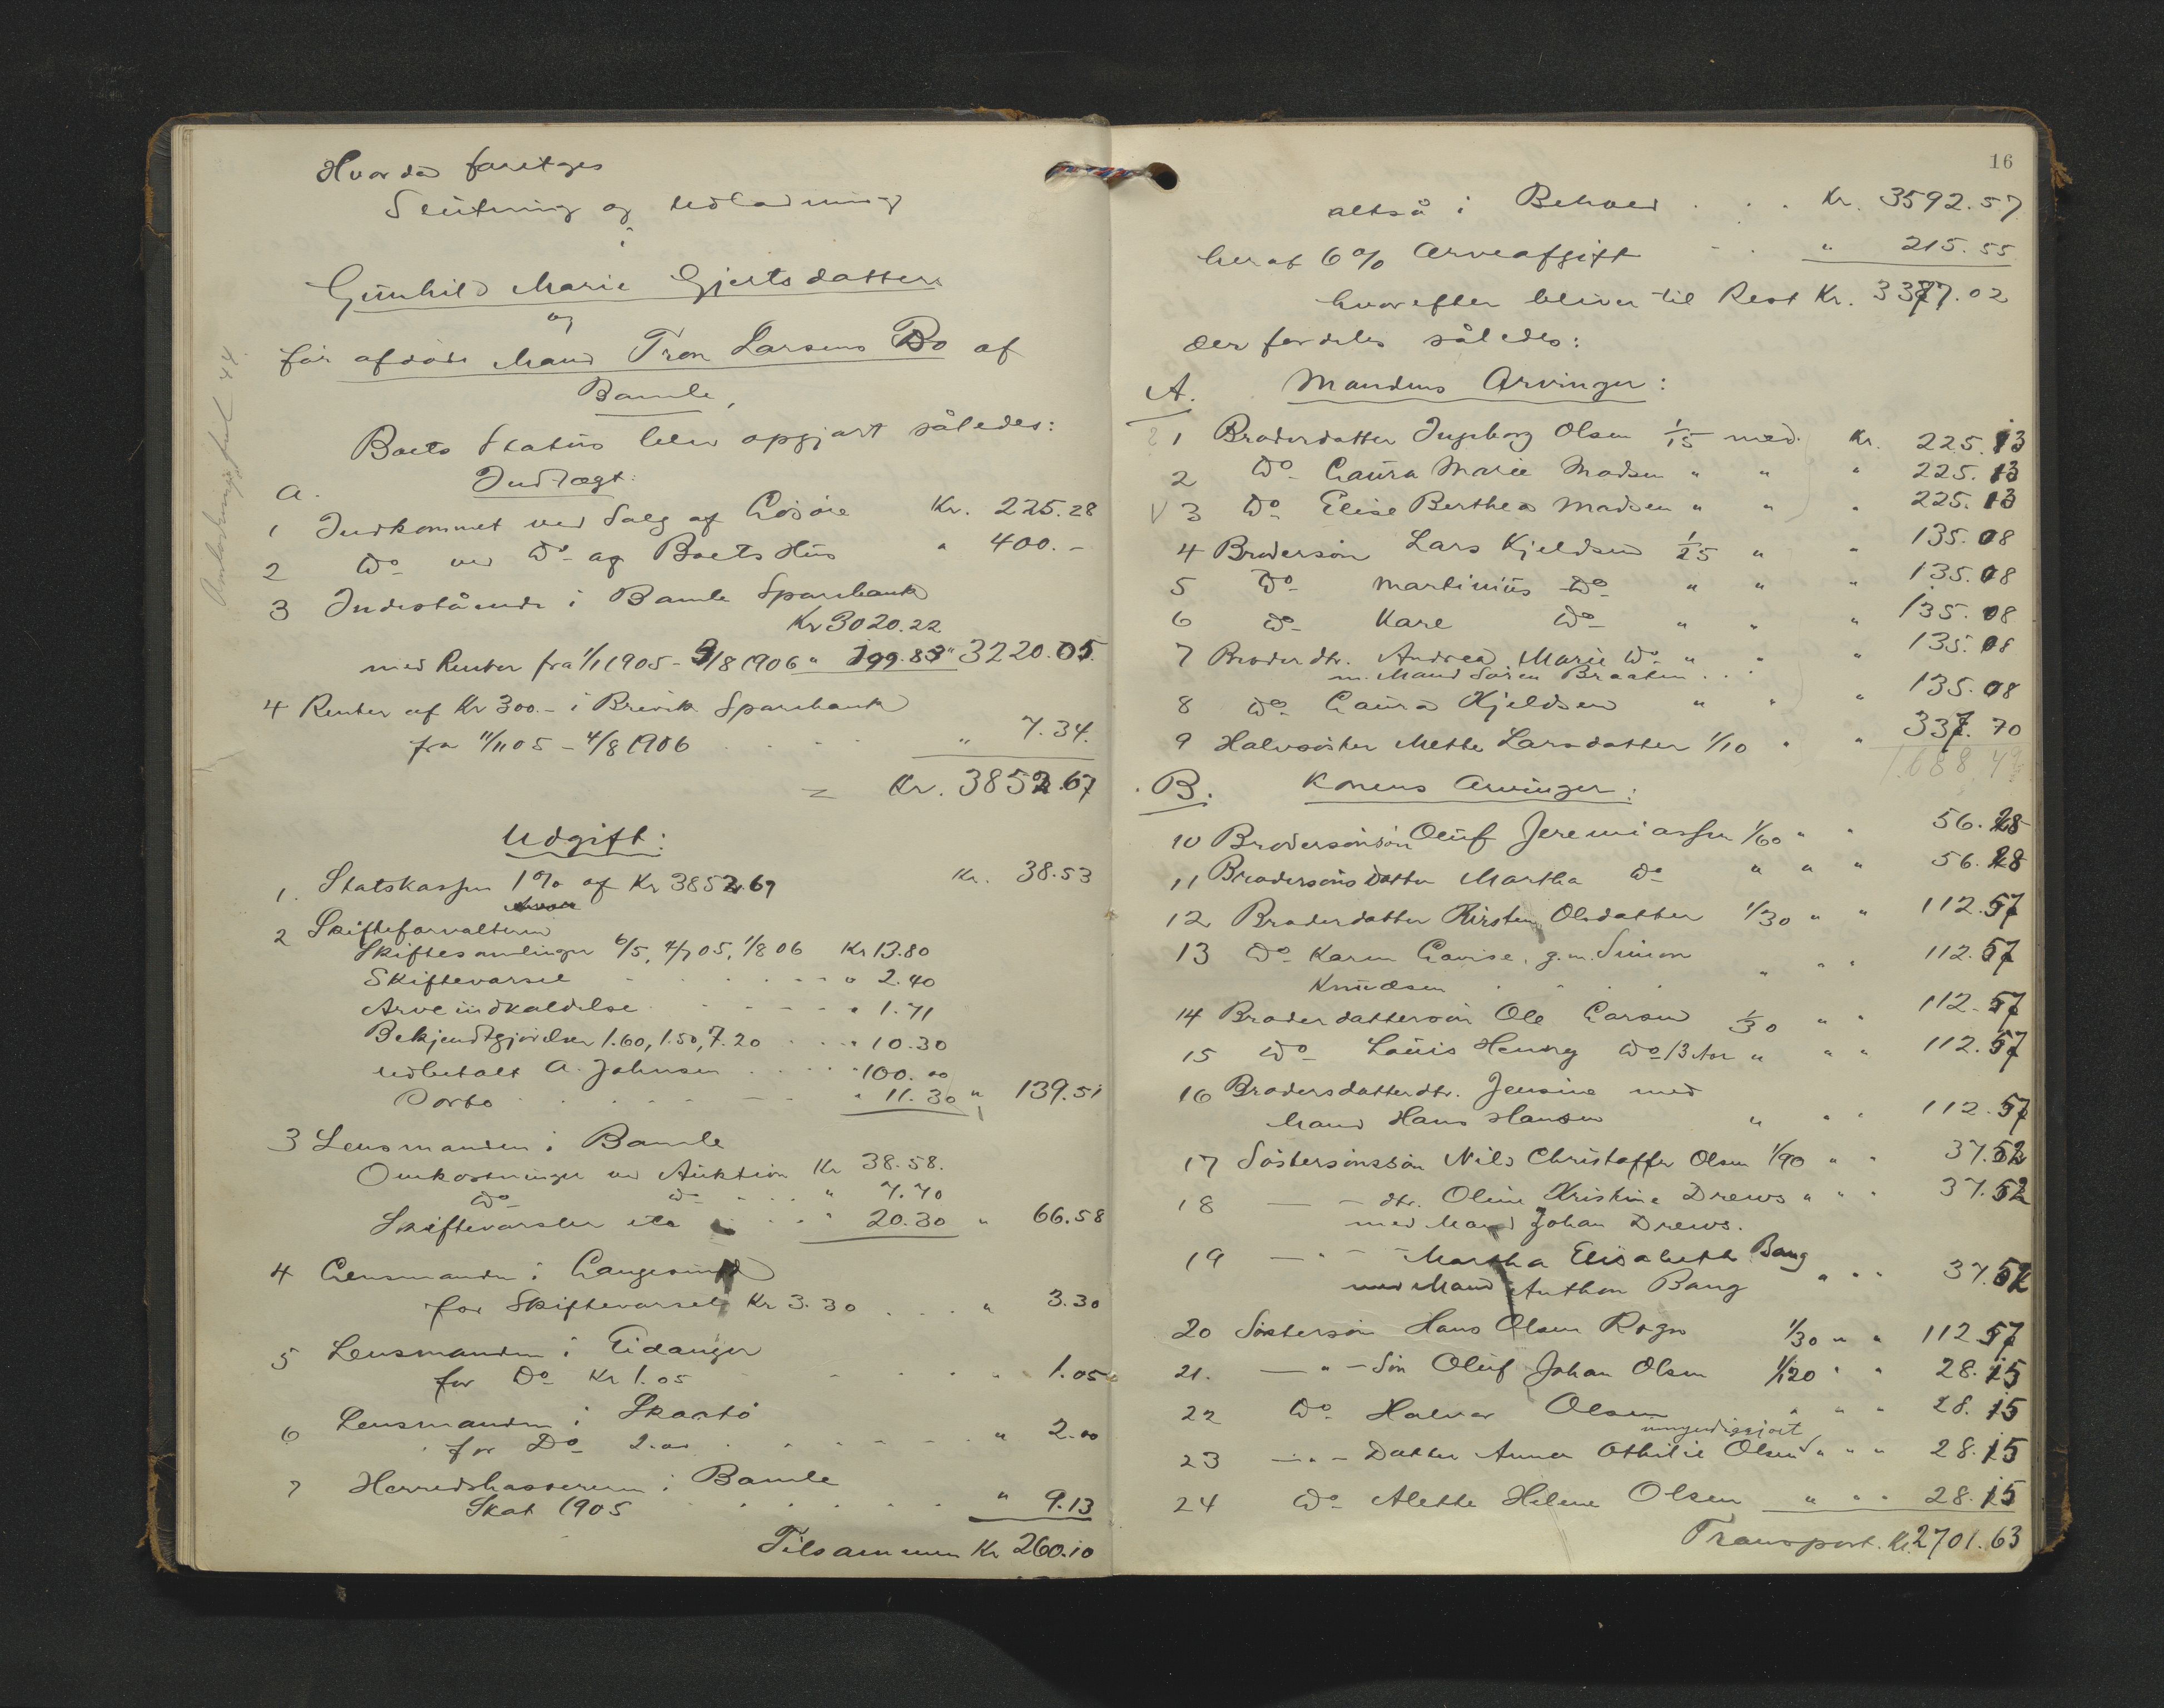 Hvorda foretoges
Slutning og Udlodning
i
Gunhild Marie Gjertsdatters
og
før afdøde Mand Tron Larsens Bo af
Bamle,
Boets Status blev opgjort således:
a. Indtægt:
1 Indkommet ved Salg af Løsøre Kr. 225.28
2 Do ved Do af Boets Hus " 400.-
3 Indestående i Bamle Sparebank
Kr 3020.22
med Renter fra 1/1 1905 - 9/8 1906 " 199.83 " 3220.05.
4 Renter af Kr 300.- i Brevik Sparebank
fra 11/11 05 - 4/8 1906 " 7.34.
= Kr. 3852.67
Udgift:
1. Statskassen 1% af Kr 3852.67 Kr. 38.53
2 Skifteforvalteren
Skiftesamlinger 6/5, 4/7 05, 1/8 06 Kr 13.80
Skiftevarsel " 2.40
Arveindkaldelse " 1.71
Bekjendtgjørelser 1.60, 1.50, 7.20 " 10.30
Udbetalt A. Johnsen " 100.00
Porto " 11.30 " 139.51
3 Lensmanden i Bamle
Omkostninger ved Auktion Kr 38.58.
Do Do " 7.70
Skiftevarsler etc " 20.30 " 66.58
4 Lensmanden i Langesund
for Skiftevarsel Kr 3.30 " 3.30
5 Lensmanden i Eidanger
for Do Kr 1.05 " 1.05
6 Lensmanden i Skaatø
for Do 2.00 " 2.00
7 Herredskassereren i Bamle
Skat 1905 " 9.13
Tilsammen Kr 260.10
16
altså i Behold Kr. 3592.57
heraf 6% Arveafgift " 215.55
hvorefter bliver til Rest Kr. 3377.02
der fordeles således:
A. Mandens Arvinger:
1 Broderdatter Ingeborg Olsen 1/15 med Kr. 225.13
2 Do Laura Marie Madsen " " " 225.13
V 3 Do Elise Berthea Madsen " " " 225.13
4 Brodersøn Lars Kjeldsen 1/25 " " 135.08
5 Do Martinius Do " " " 135.08
6 Do Kare Do " " " 135.08
7 Broderdtr. Andrea Marie Do " " " 135.08
m. Mand Søren Braaten
8 Do Laura Kjeldsen " " " 135.08
9 Halvsøster Mette Larsdatter 1/10 " " 337.70
1688.49
B. Konens Arvinger:
10 Brodersønssøn Oluf Jeremiassen 1/60 " " 56.28
11 Brodersønsdatter Martha Do " " " 56.28
12 Broderdatter Kirsten Olsdatter 1/30 " " 112.57
13 Do Karen Lovise, g.m. Simon
Knudsen " " " 112.57
14 Broderdattersøn Ole Larsen 1/30 " " 112.57
15 Do Louis Henry Do 13 Aar " " " 112.57
16 Brodersdatterdtr. Jensine med
Mand Hans Hansen " " " 112.57
17 Søstersønssøn Nils Christoffer Olsen 1/90 " " 37.52
18 — – dtr. Oline Kristine Drews " " " 37.52
med Mand Johan Drews.
19 — " – Martha Elisabeth Bang
med Mand Anthon Bang " " " 37.52
20 Søstersøn Hans Olsen Rogn 1/30 " " 112.57
21. — " – Søn Oluf Johan Olsen 1/120 " " 28.15
22 Do Halvor Olsen " " " 28.15
umyndiggjort
23 — " – Datter Anna Othilie Olsen " " " 28.15
24 Do Alette Helene Olsen " " " 28.15
Transport. Kr. 2701.63